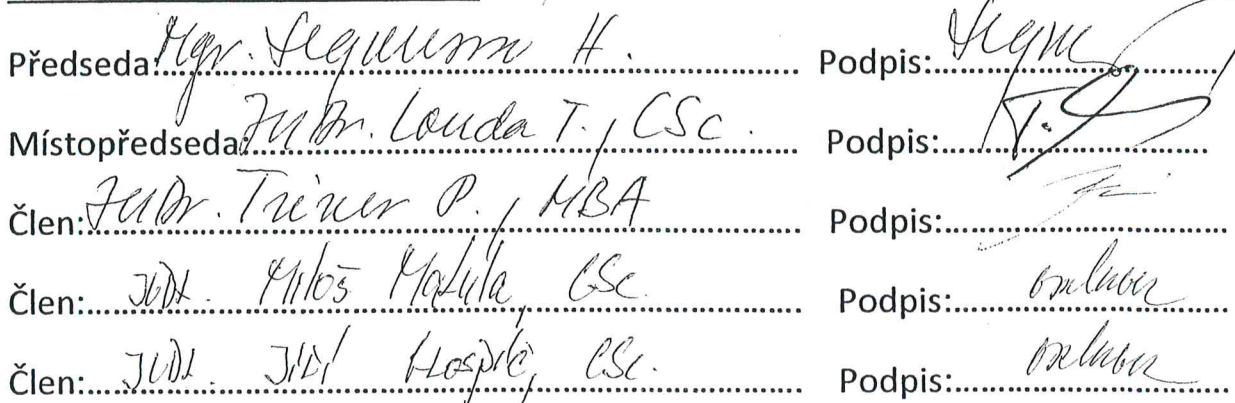 Předseda: Mgr. H. Podpis:
Místopředseda: JUDr. Louda T., CSc. Podpis:
Člen: JUDr. Třiner P., MBA Podpis:
Člen: JUDr. Miloš Matula, CSc. Podpis: omluven
Člen: JUDr. Jiří CSc. Podpis: omluven